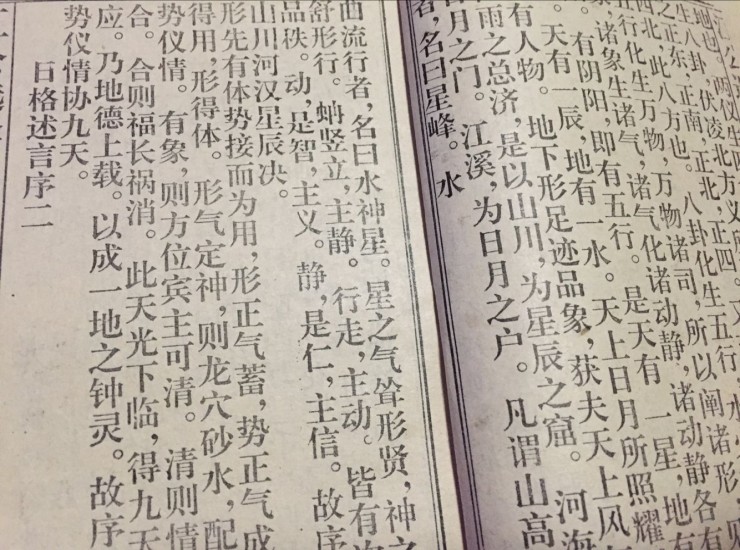 地也。两仪生四
生八卦，伏凌北方义所
之正东，正南，正北，正四。
四北，此八方也。八卦化生五行，水
五行化生万物，万物诸司，所以阐诸形，
象，诸象生诸气，诸气化诸动静，诸动静各有
。有阴阳，即有五行。是天有一星，地有
。天有一辰，地有一水。天上日月所照耀
有人物。地下形足迹品象，获夫天上风
雨之总济，是以山川，为星辰之窟。河海
日月之门。江溪，为日月之户。凡谓山高
者，名曰星峰。水
曲流行者，名曰水神星。星之气耸形贤，神之
舒形行。蚺竖立，主静。行走，主动。皆有
品秩。动，是智，主义。静，是仁，主信。故序
山川河汉星辰决。
形先有体势接而为用，形正气蓄，势正气成
得用，形得体。形气定神，则龙穴砂水，配
势仪情。有象，则方位宾主可清。清则情
合。合则福长祸消。此天光下临，得九天
应。乃地德上载。以成一地之钟灵。故序
势仪情协九天。
日格述言序二